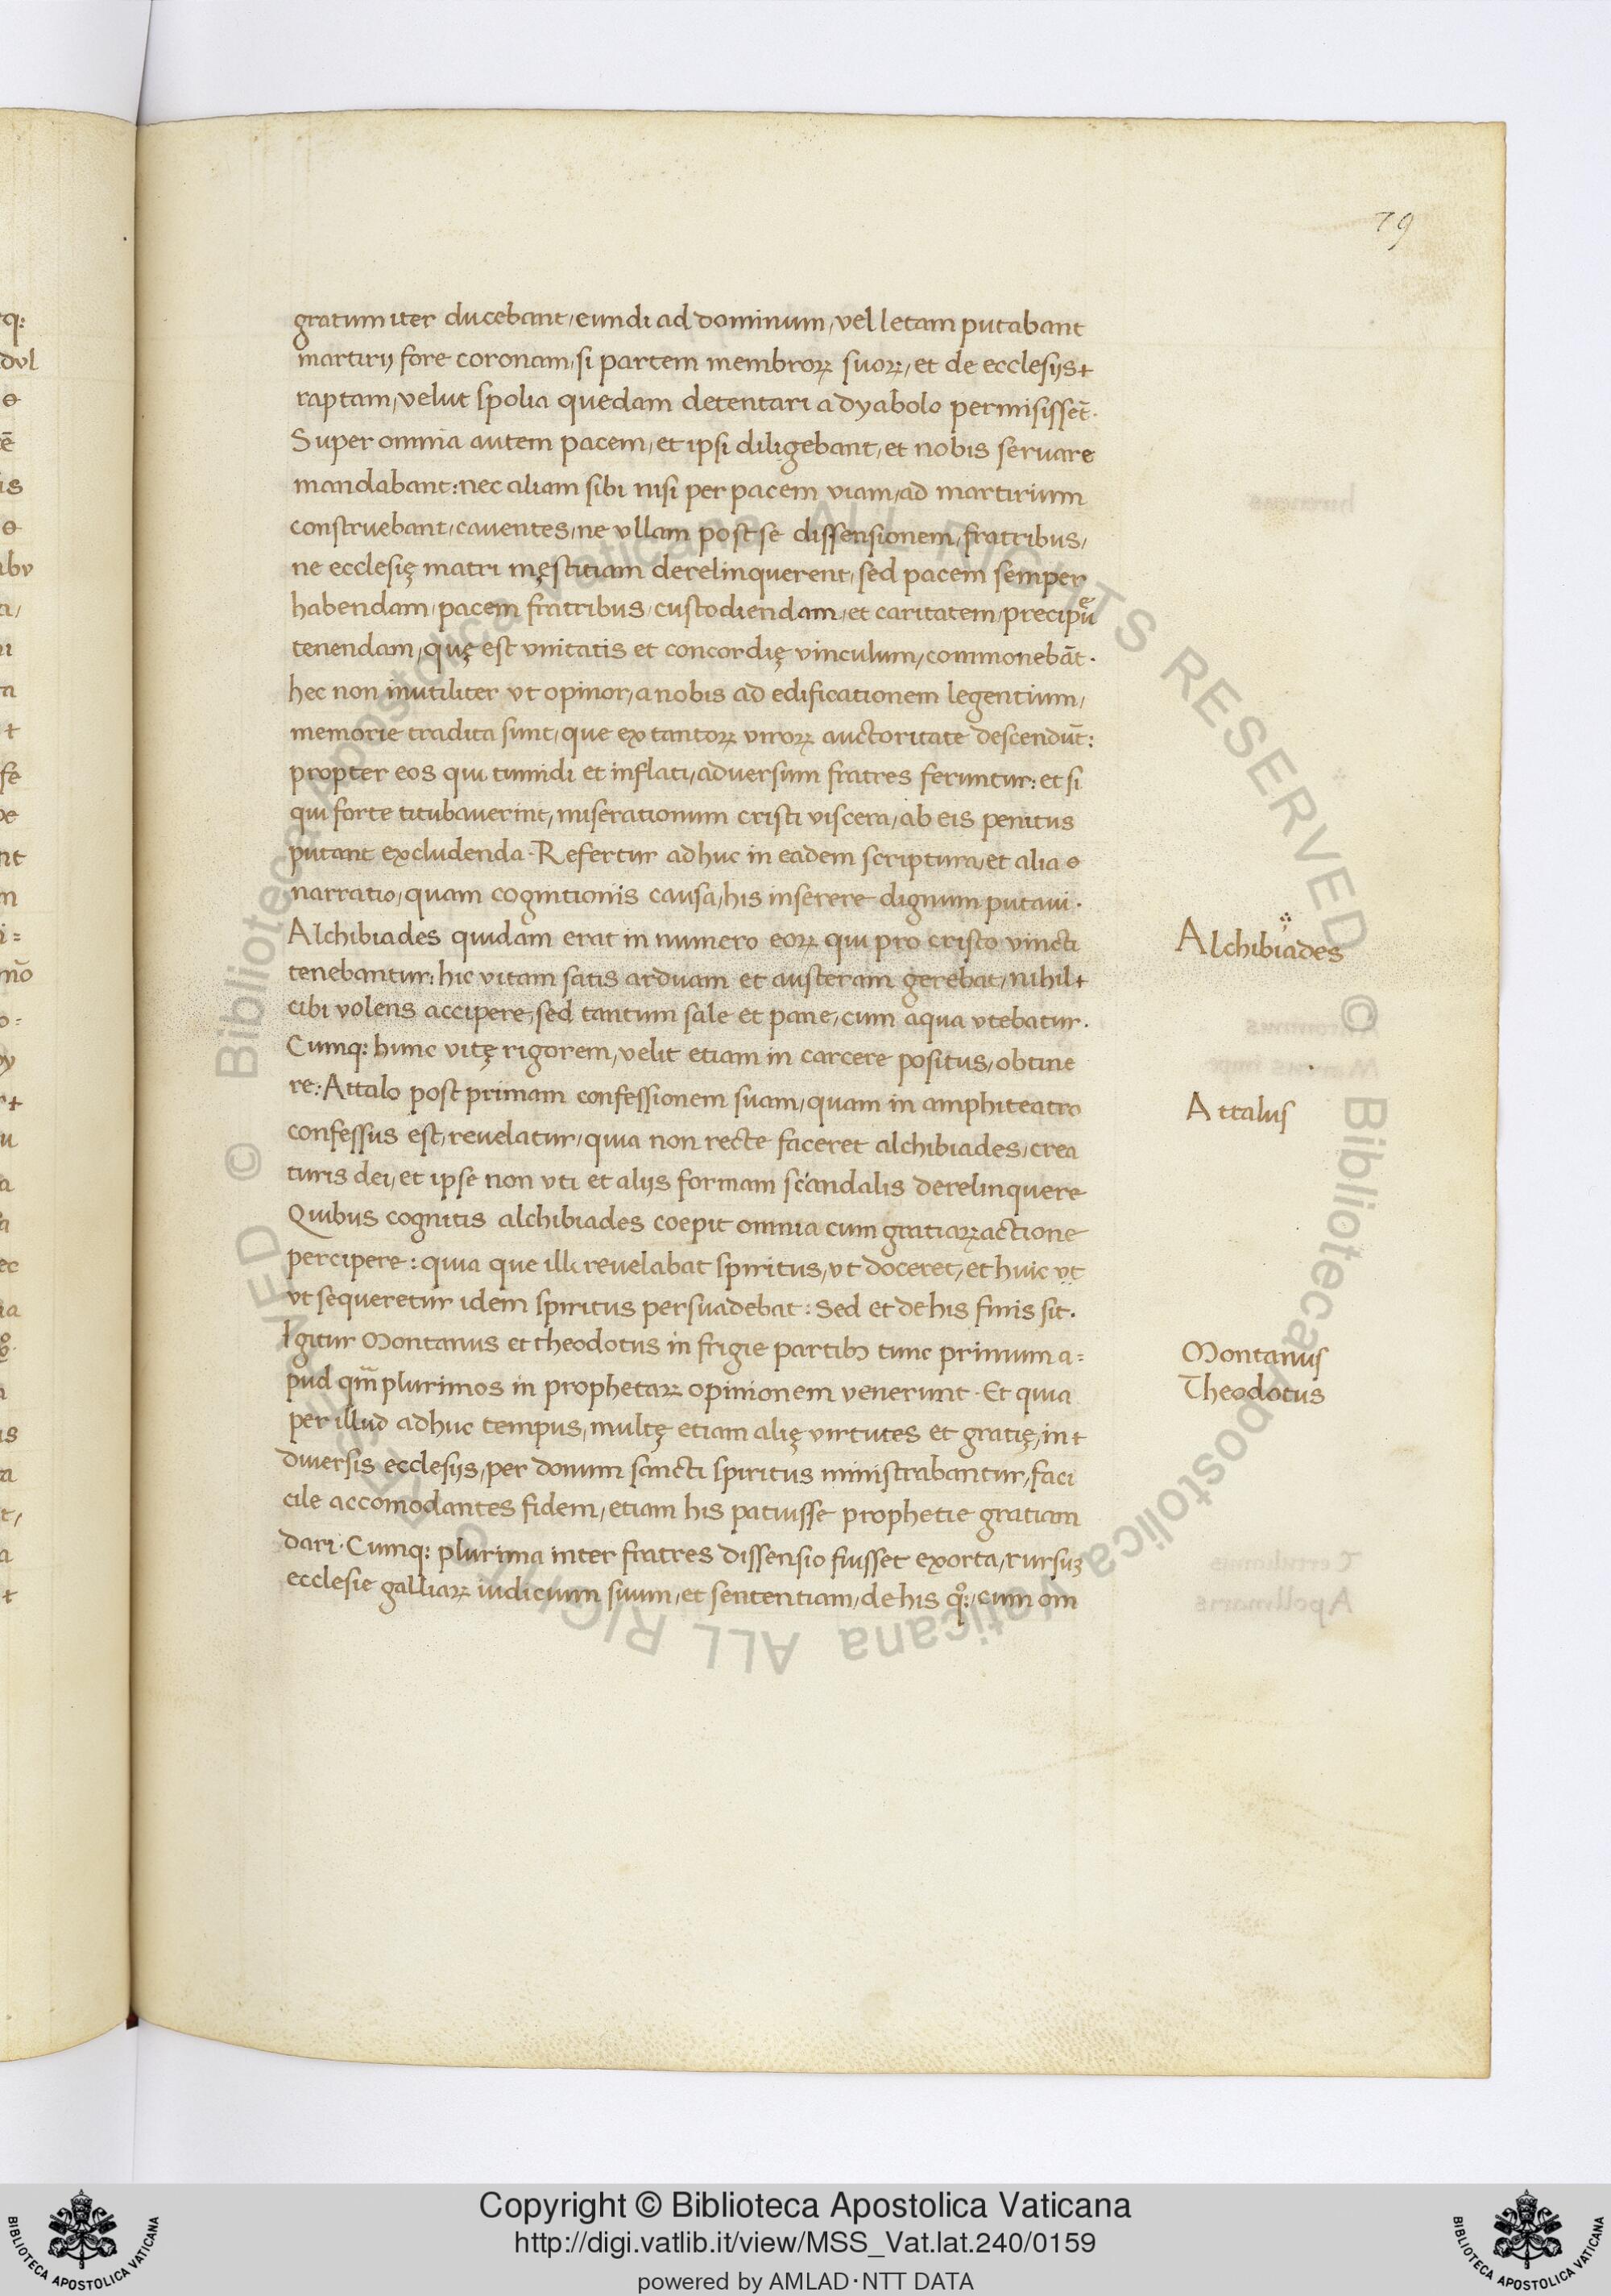 79
gratum iter ducebant, eundi ad dominum, vel letam putabant
martirij fore coronam, si partem membroꝝ suoꝝ, et de ecclesijs
raptam, velut spolia quedam detentari a dyabolo permisisset̄.
Super omnia autem pacem, et ipsi diligebant, et nobis servare
mandabant: nec aliam sibi nisi per pacem viam, ad martirium
construebant, caventes, ne ullam post se dissensionem, fratribus,
ne ecclesię matri męstitiam derelinquerent, sed pacem semper
habendam, pacem fratribus, custodiendam, et caritatem, precipue
tenendam, quę est unitatis et concordię vinculum, commonebāt.
hec non inutiliter ut opinor, a nobis ad edificationem legentium,
memorie tradita sunt, que ex tantoꝝ viroꝝ auctoritate descendūt:
propter eos qui tumidi et inflati, adversum fratres feruntur: et si
qui forte titubaverint, miserationum cristi viscera, ab eis penitus
putant excludenda. Refertur adhuc in eadem scriptura, et alia
narratio, quam cognitionis causa, his inserere dignum putavi.
Alchibiades quidam erat in numero eoꝝ qui pro cristo vincti
tenebantur: hic vitam satis arduam et austeram gerebat, nihil
cibi volens accipere, sed tantum sale et pane, cum aqua utebatur.
Cumq: hunc vitę rigorem, velit etiam in carcere positus, obtine
re: Attalo post primam confessionem suam, quam in amphiteatro
confessus est, revelatur, quia non recte faceret alchibiades, crea
turis dei, et ipse non uti et alijs formam scandalis derelinquere
Quibus cognitis alchibiades coepit omnia cum gratiaꝝ actione
percipere: quia que illi revelabat spiritus, ut doceret, et huic ut
ut sequeretur idem spiritus persuadebat: Sed et de his finis sit.
Igitur Montanus et theodotus in frigie partibꝫ tunc primum a=
pud qm̄ plurimos in prophetaꝝ opinionem venerunt. Et quia
per illud adhuc tempus, multę etiam alię virtutes et gratię, in
diversis ecclesijs, per donum sancti spiritus ministrabantur, faci
cile accomodantes fidem, etiam his patuisse prophetie gratiam
dari. Cumq: plurima inter fratres dissensio fuisset exorta, rursuꝫ
ecclesie galliaꝝ iudicium suum, et sententiam, de his qͦ:, cum om
Alchibiades
Attalus
Montanus
Theodotus
Copyright © Biblioteca Apostolica Vaticana
http://digi.vatlib.it/view/MSS_Vat.lat.240/0159
powered by AMLAD·NTT DATA